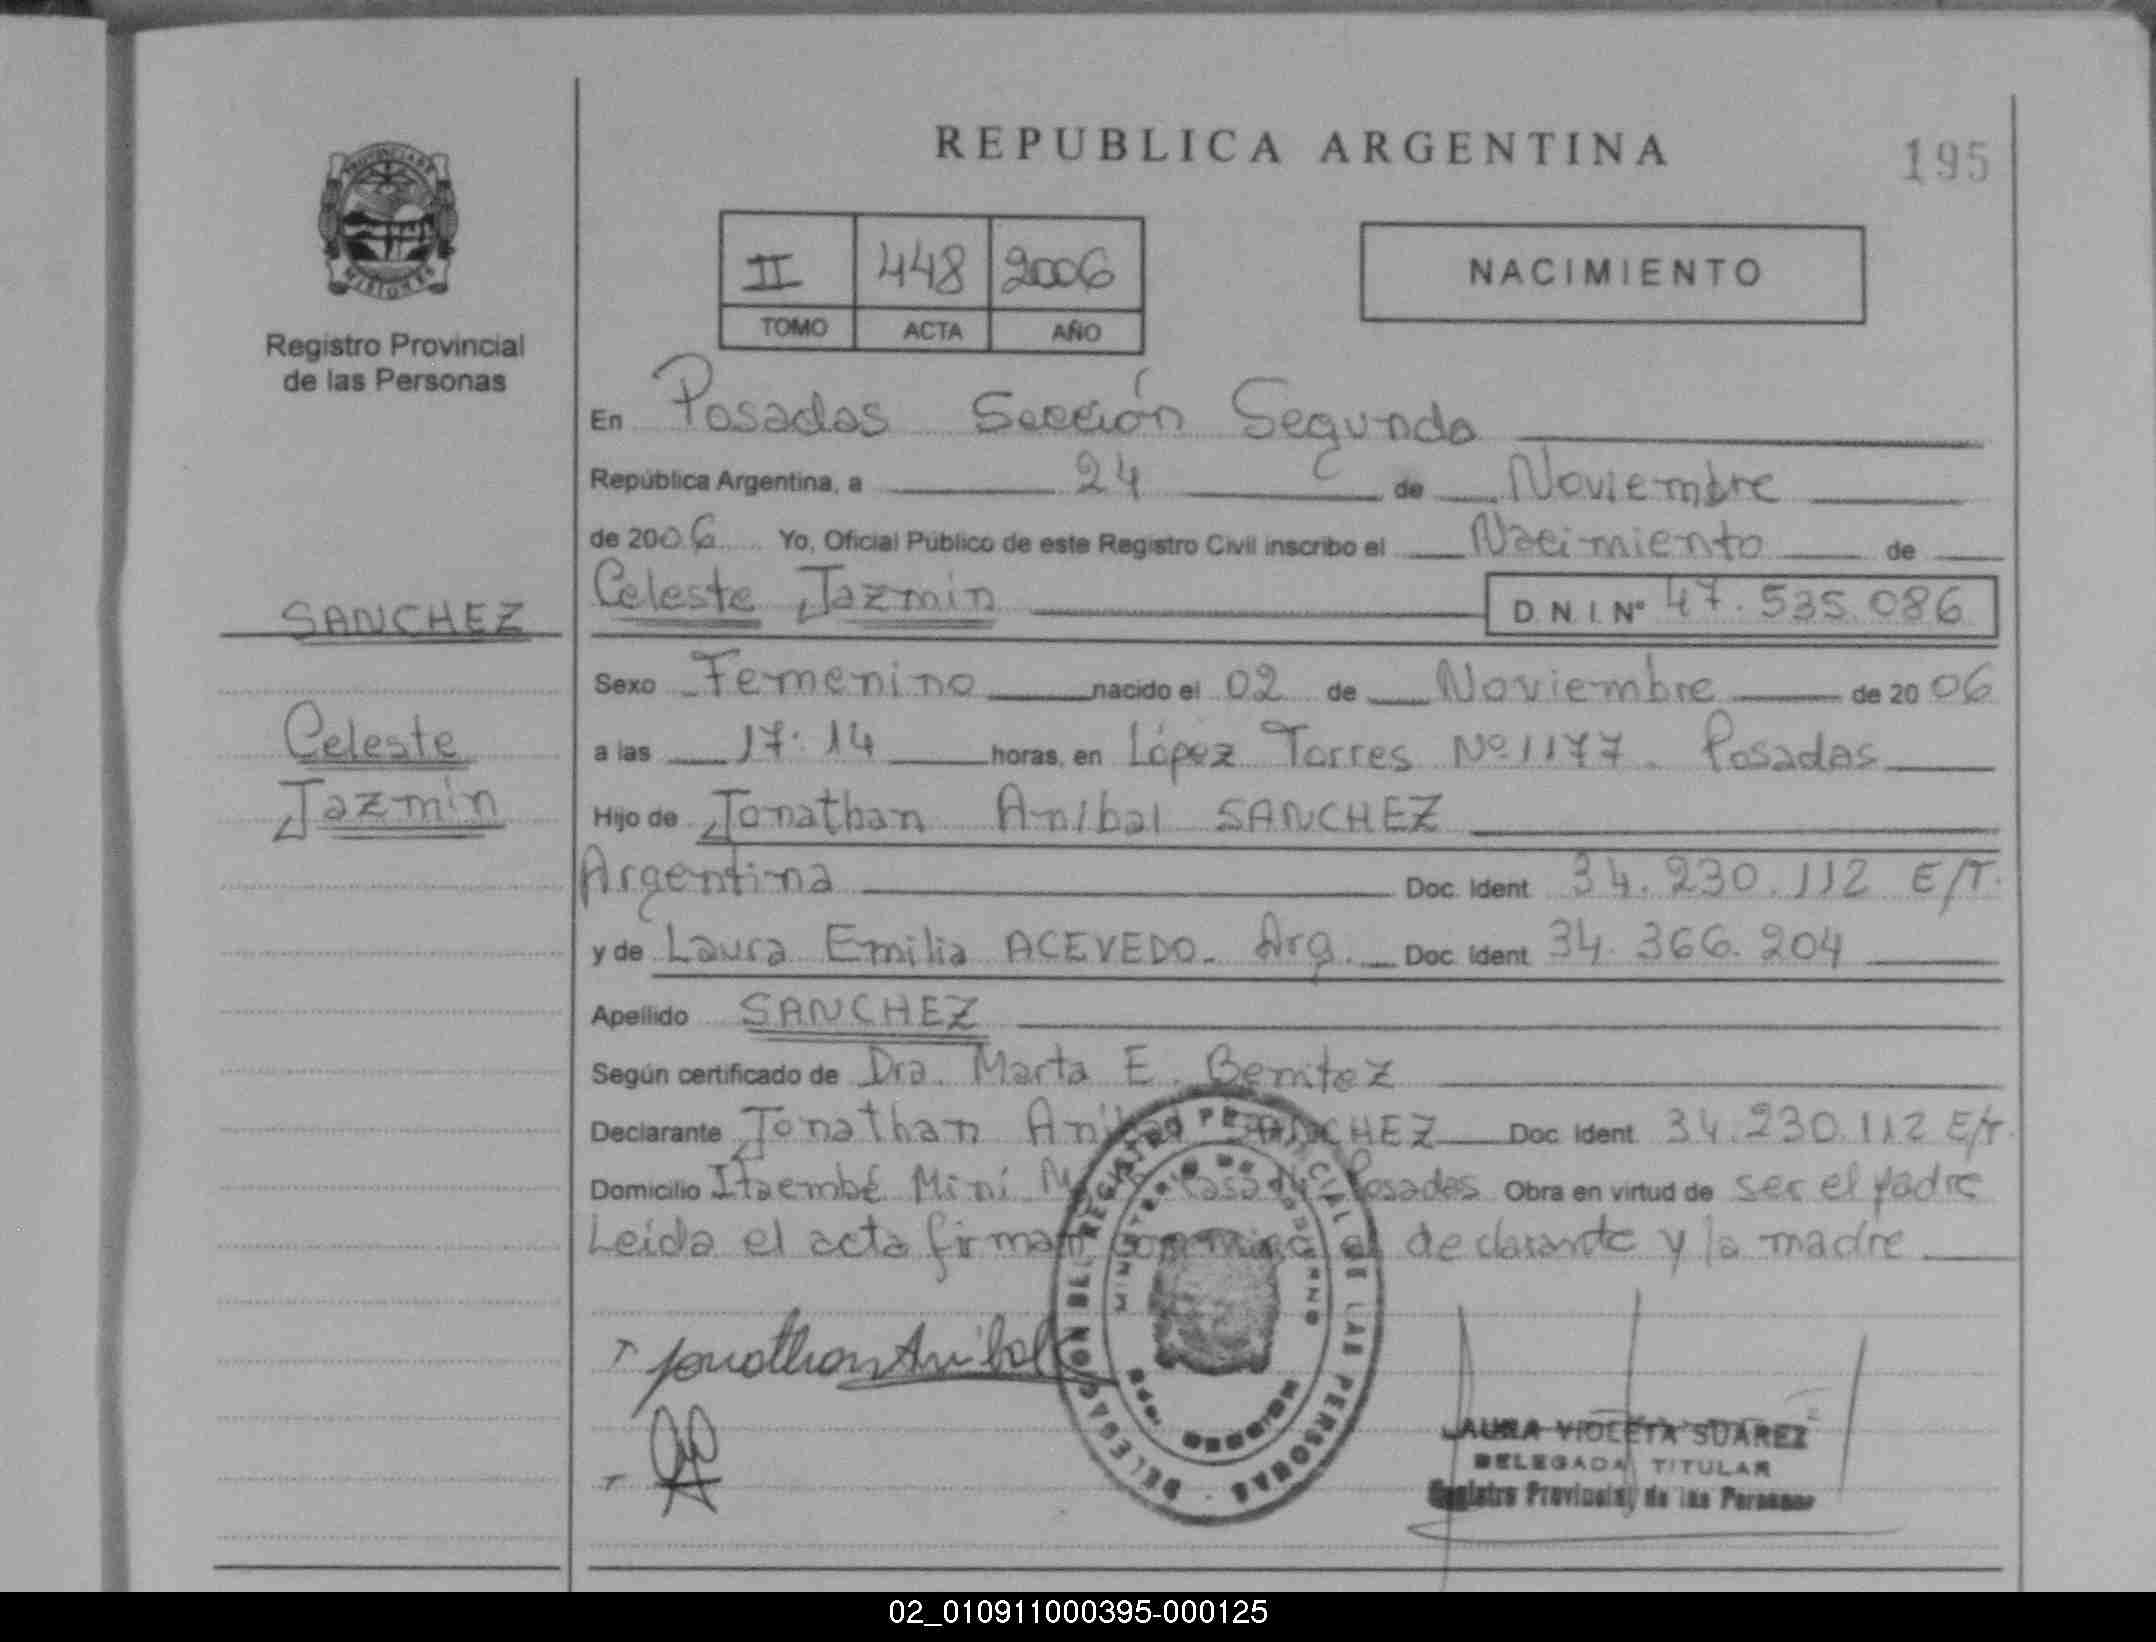 REPUBLICA ARGENTINA
195
PROVINCIA DE
MISIONES
Registro Provincial
de las Personas
II 448 2006
TOMO ACTA AÑO
NACIMIENTO
En Posadas Sección Segunda
República Argentina, a 24 de Noviembre
de 2006 Yo, Oficial Público de este Registro Civil inscribo el Nacimiento de
Celeste Jazmín D.N.I. Nº 47.535.086
SANCHEZ
Celeste
Jazmín
Sexo Femenino nacido el 02 de Noviembre de 2006
a las 17:14 horas, en López Torres Nº 1177. Posadas
Hijo de Jonathan Aníbal SANCHEZ
Argentina Doc. Ident 34.230.112 E/T.
y de Laura Emilia ACEVEDO. Arg. Doc. Ident 34.366.204
Apellido SANCHEZ
Según certificado de Dra. Marta E. Benitez
Declarante Jonathan Aníbal SANCHEZ Doc. Ident. 34.230.112 E/T.
Domicilio Itaembé Miní Posadas Obra en virtud de ser el padre
Leída el acta firman conmigo el declarante y la madre
Jonathan Anibal
DELEGACION DEL REGISTRO PROVINCIAL DE LAS PERSONAS
MINISTERIO DE GOBIERNO
MISIONES
LAURA VIOLETA SUAREZ
DELEGADA TITULAR
Registro Provincial de las Personas
02_010911000395-000125